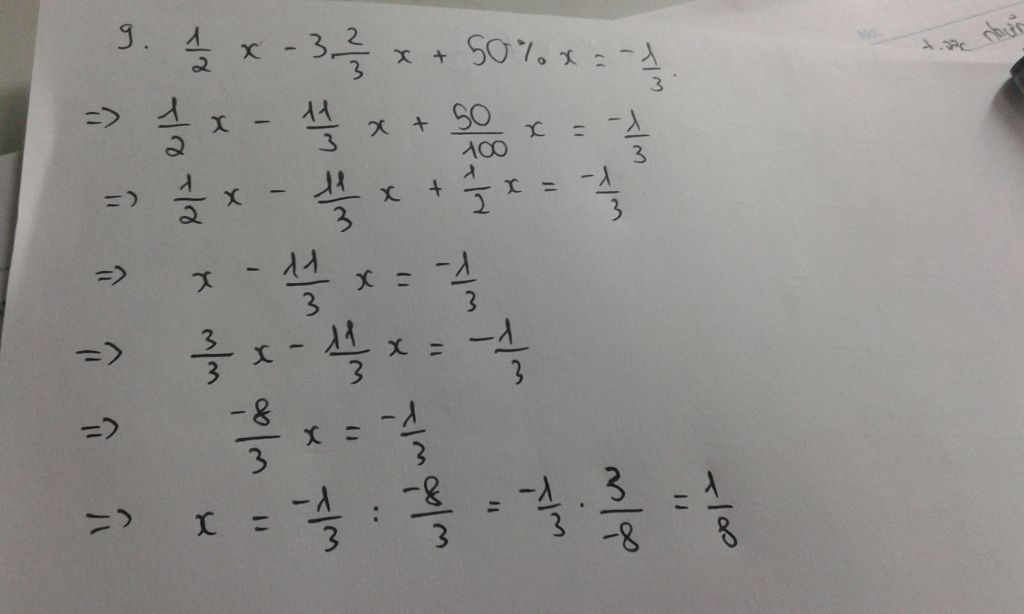 9. 1/2 x - 3 2/3 x + 50% x = -1/3.
=> 1/2 x - 11/3 x + 50/100 x = -1/3
=> 1/2 x - 11/3 x + 1/2 x = -1/3
=> x - 11/3 x = -1/3
=> 3/3 x - 11/3 x = -1/3
=> -8/3 x = -1/3
=> x = -1/3 : -8/3 = -1/3 . 3/-8 = 1/8